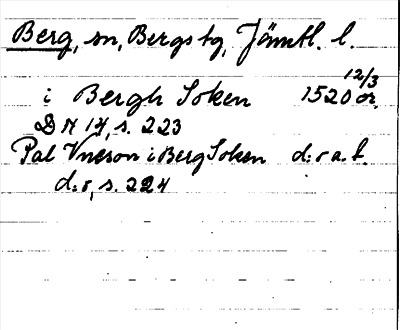 Berg, sn, Bergs tg, Jämtl. l.
i Bergh Soken 1520 12/3 or.
DN 14, s. 223
Pal Vneson i Berg Soken d:o a. f.
d:o, s. 224